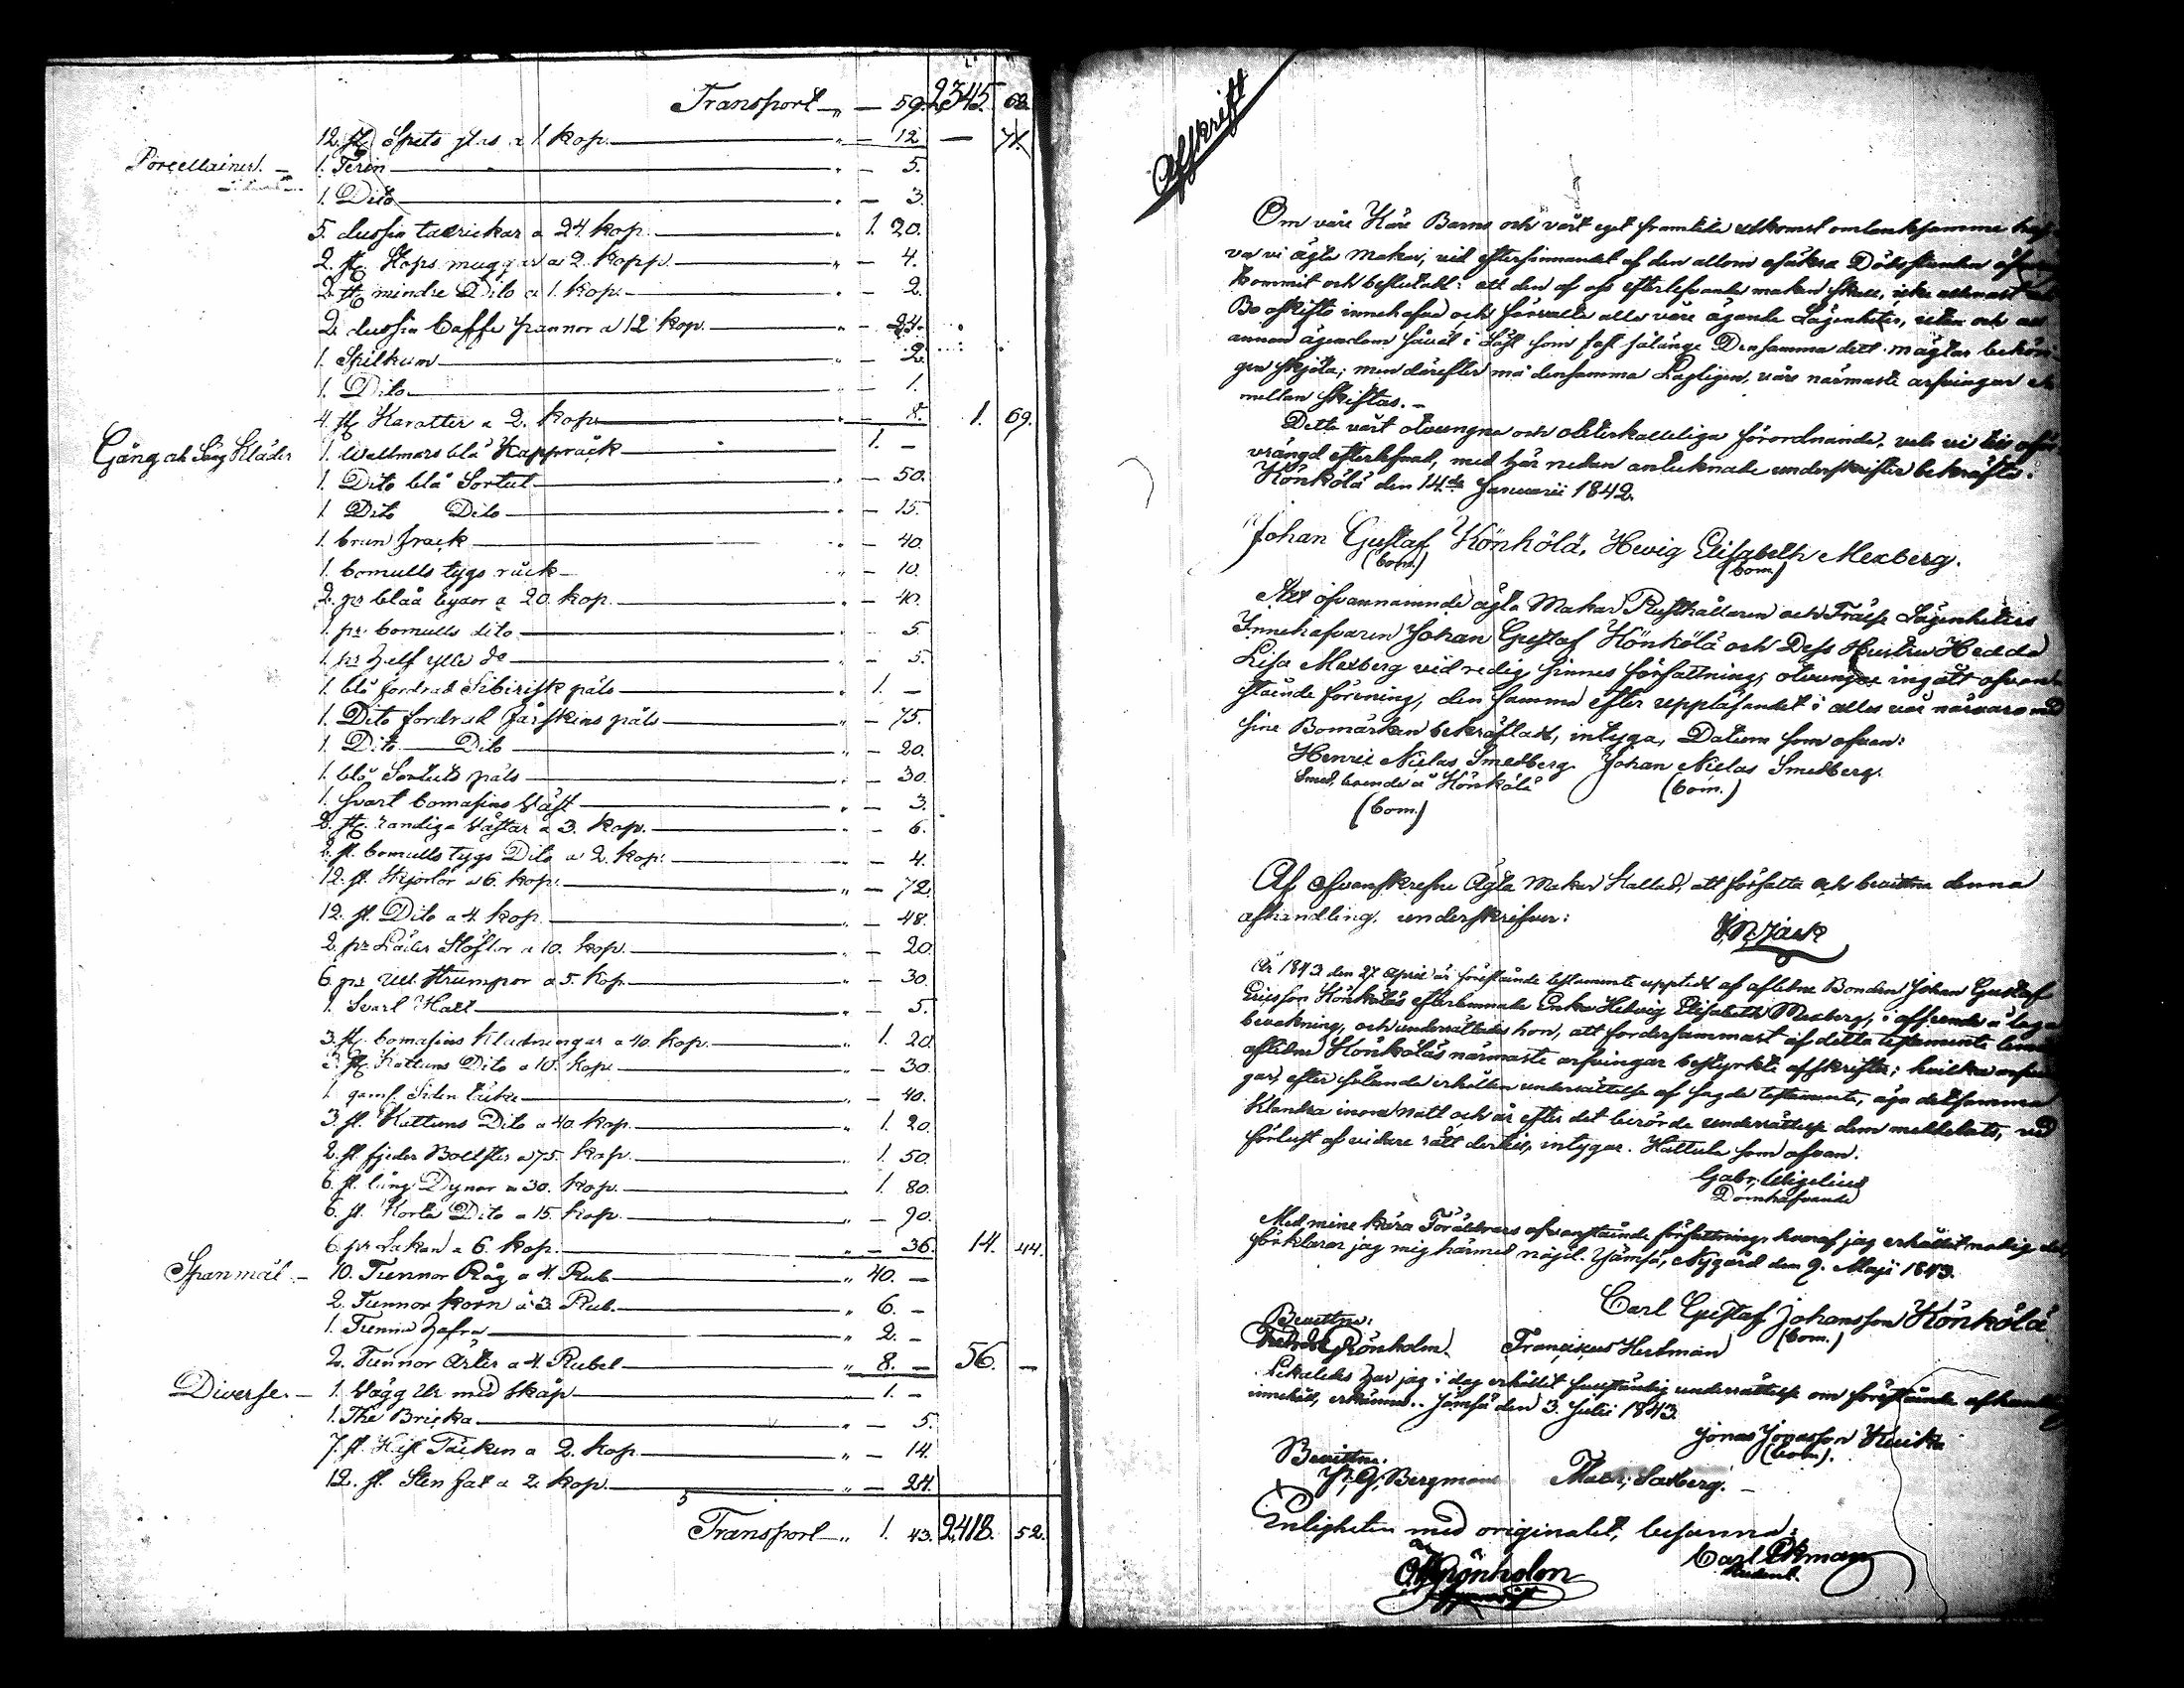 Transport „ — 59. 2,345. 68.
12. st Spets glas a 1. kop. „ — 12 — 71.
Porcellainer. — 1. Terin „ — 5.
1. Dito „ — 3.
5. dussin tallrickar a 24. kop. „ 1. 20.
2. st. Stops muggar a 2. kopp. „ — 4.
2. st mindre Dito a 1. kop. „ — 2.
2. dussin Caffe pannor a 12 kop. „ — 24.
1. Spilkum „ — 2.
1. Dito „ — 1.
4. st Karotter a 2. kop. „ — 8. 1. 69.
Gång och Säng Kläder 1. Wallmars blå Kappråck 1. —
1. Dito blå Sortut „ — 50.
1 Dito Dito „ — 15.
1. brun frack „ — 40.
1. bomulls tygs råck „ — 10.
2. pr blåå byxor a 20. kop. „ — 40.
1. pr bomulls dito „ — 5.
1. pr half ylle do „ — 5.
1. blå fordrad Sibirisk päls „ 1. —
1. Dito fordrad fårskins päls „ — 75.
1. Dito Dito „ — 20.
1. blå Sortuts päls „ — 30.
1. svart bomasins väst „ — 3.
2. st. randiga Västar a 3. kop. „ — 6.
2. st. bomulls tygs Dito a 2. kop. „ — 4.
12. st. Skjortor a 6. kop. „ — 72.
12. st. Dito a 4. kop. „ — 48.
2. pr Läder Stöflor a 10. kop. „ — 20.
6. pr Ull strumpor a 5. kop. „ — 30.
1. Svart Hatt „ — 5.
3. st. bomasins Kladningar a 40. kop. „ 1. 20.
3. st. Kattuns Dito a 10. kop. „ — 30.
1. gamf. Siden täcke „ — 40.
3. st. Kattuns Dito a 40. kop. „ 1. 20.
2. st fjeder Bolster a 75. kop. „ 1. 50.
6. st. lång Dynor a 30. kop. „ 1. 80.
6. st. Korta Dito a 15. kop. „ — 90.
6. pr Lakan a 6. kop. „ — 36. 14. 44.
Spanmål — 10. Tunnor Råg a 4. Rub. „ 40. —
2. Tunnor korn a 3. Rub. „ 6. —
1. Tunna Hafra „ 2. —
2. Tunnor Ärter a 4. Rubel „ 8. — 56. —
Diverse. — 1. Vägg Ur med skåp „ 1. —
1. The Bricka „ — 5.
7. st. Täcken a 2. kop. „ — 14.
12. st. Sten fat a 2. kop. „ — 24.
Transport „ 1. 43. 2,418. 52.
Afskrift
Om våre Käre Barns och vårt eget framtida utkomst omtanksamme haf-
va vi ägta makar, vid eftersinnandet af den allom osäkra Dödsstunden
kommit och beslutadt: att den af oss efterlefvande makan skall, icke allenast
Bo oskifto innehafva och förvalta alla våre ägande Lägenheter, utan och all
annan ägendom såväl i Löst som fast sålänge Densamma dett mägtar behöri-
gen sköta; men därefter må densamma Lagligen, våre närmaste arfvingar
mellan skiftas. —
Detta vårt otvungna och oåterkalleliga förordnande, vele vi till
vrångd efterlefnad, med här nedan antecknade underskrifter bekräfta.
Könkölä den 14de Januarii 1842.
Johan Gustaf Könkölä. Hevig Elisabeth Mexberg.
(bom.) (bom.)
Att ofvannamnde ägta Makar Rusthållaren och Frälse Lägenheters
Innehafvaren Johan Gustaf Könkölä och Dess Hustru Hedda
Lisa Mexberg vid redig sinnes författning, otvungne ingått ofvan-
stående förening, den samma efter uppläsandet i alles vår närvaro med
sine Bomärken bekräftadt, intyga, Datum som ofvan:
Henric Niclas Smedberg Johan Niclas Smedberg.
Smed, boende å Könkölä (bom.)
(bom.)
Af Ofvanskrefne Ägta Makar Kallad, att författa och bevittna denna
afhandling. underskrifver:
År 1843 den 27. April är förestående testamente uppteet af aflidne Bonden Johan Gustaf
Ericsson Könkäläs efterlemnade Enka Helvig Elisabeth Mexberg, i afseende å laga
bevakning, och underrättades hon, att fordersammast af detta testamente
aflidne Könköläs närmaste arfvingar bestyrkte afskrifter; hvilka
gar, efter sålunda erhållen underrättelse af sagde testamente, äga detsamma
Klandra inom natt och år efter det berörde underrättelse dem meddelats, vid
förlust af vidare rätt dertill, intygar. Hattula som ofvan.
Gabr. Wigelius
Domhafvande
Med mine kära Föräldrars ofvanstående författning, hvaraf jag erhållit nodig del,
förklarar jag mig härmed nöjd. Jämsä, Nygård den 9. Maji 1843.
Carl Gustaf Johansson Könkölä
Bevittna: (bom.)
Grönholm. Franciscus Hertman
Likaledes har jag i dag erhållit fuuständig underrättelse om förestående
innehåll, erkänna.. Jämsä den 3. Julii 1843.
Jonas Jonasson
(bom.)
Bevittna.
Bergman
Enligheten med originalet, besanna:
Grönholm Carl Ekman